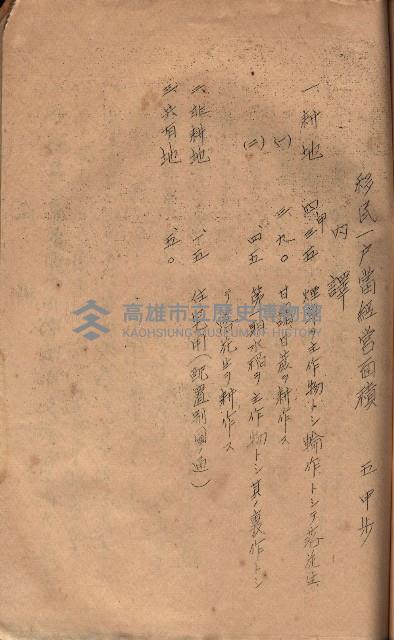 移民一戶當経営面積　五甲歩
内譯
一、耕地　四甲三五　煙草ヲ主作物トシ輪作トシテ落花生
(一)　三、九〇　甘藷甘蔗ヲ耕作ス
(二)　、四五　第一期水稲ヲ主作物トシ其ノ裏作トシ
テ落花生ヲ耕作ス
二、非耕地　、一五　住宅用(配置別図ノ通)
三、共有地　、五〇
高雄市立歷史博物館
KAOHSIUNG MUSEUM OF HISTORY